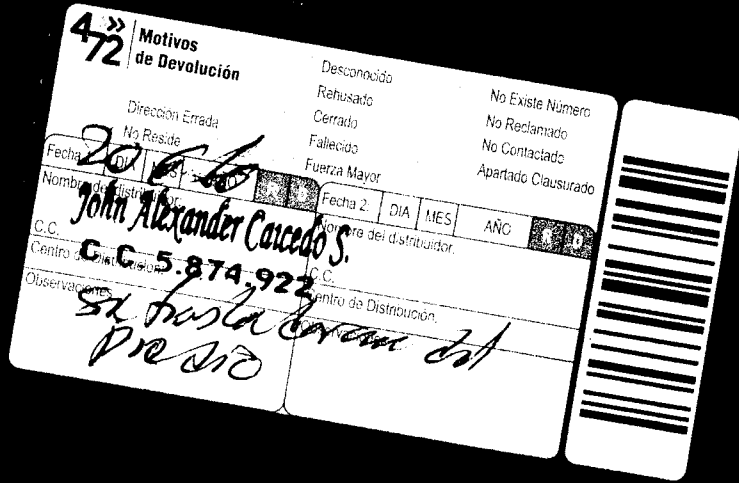 472
Motivos
de Devolución
Desconocido
Rehusado
Cerrado
Fallecido
Fuerza Mayor
No Existe Número
No Reclamado
No Contactado
Apartado Clausurado
Dirección Errada
No Reside
Fecha DIA
20 6
Nombre del distribuidor:
John Alexander Caicedo S.
C.C.
C.C. 5.874.922
Centro de Distribución
Observaciones
Se trasla
del
predio
Fecha 2: DIA MES AÑO R D
Nombre del distribuidor:
C.C.
Centro de Distribución: